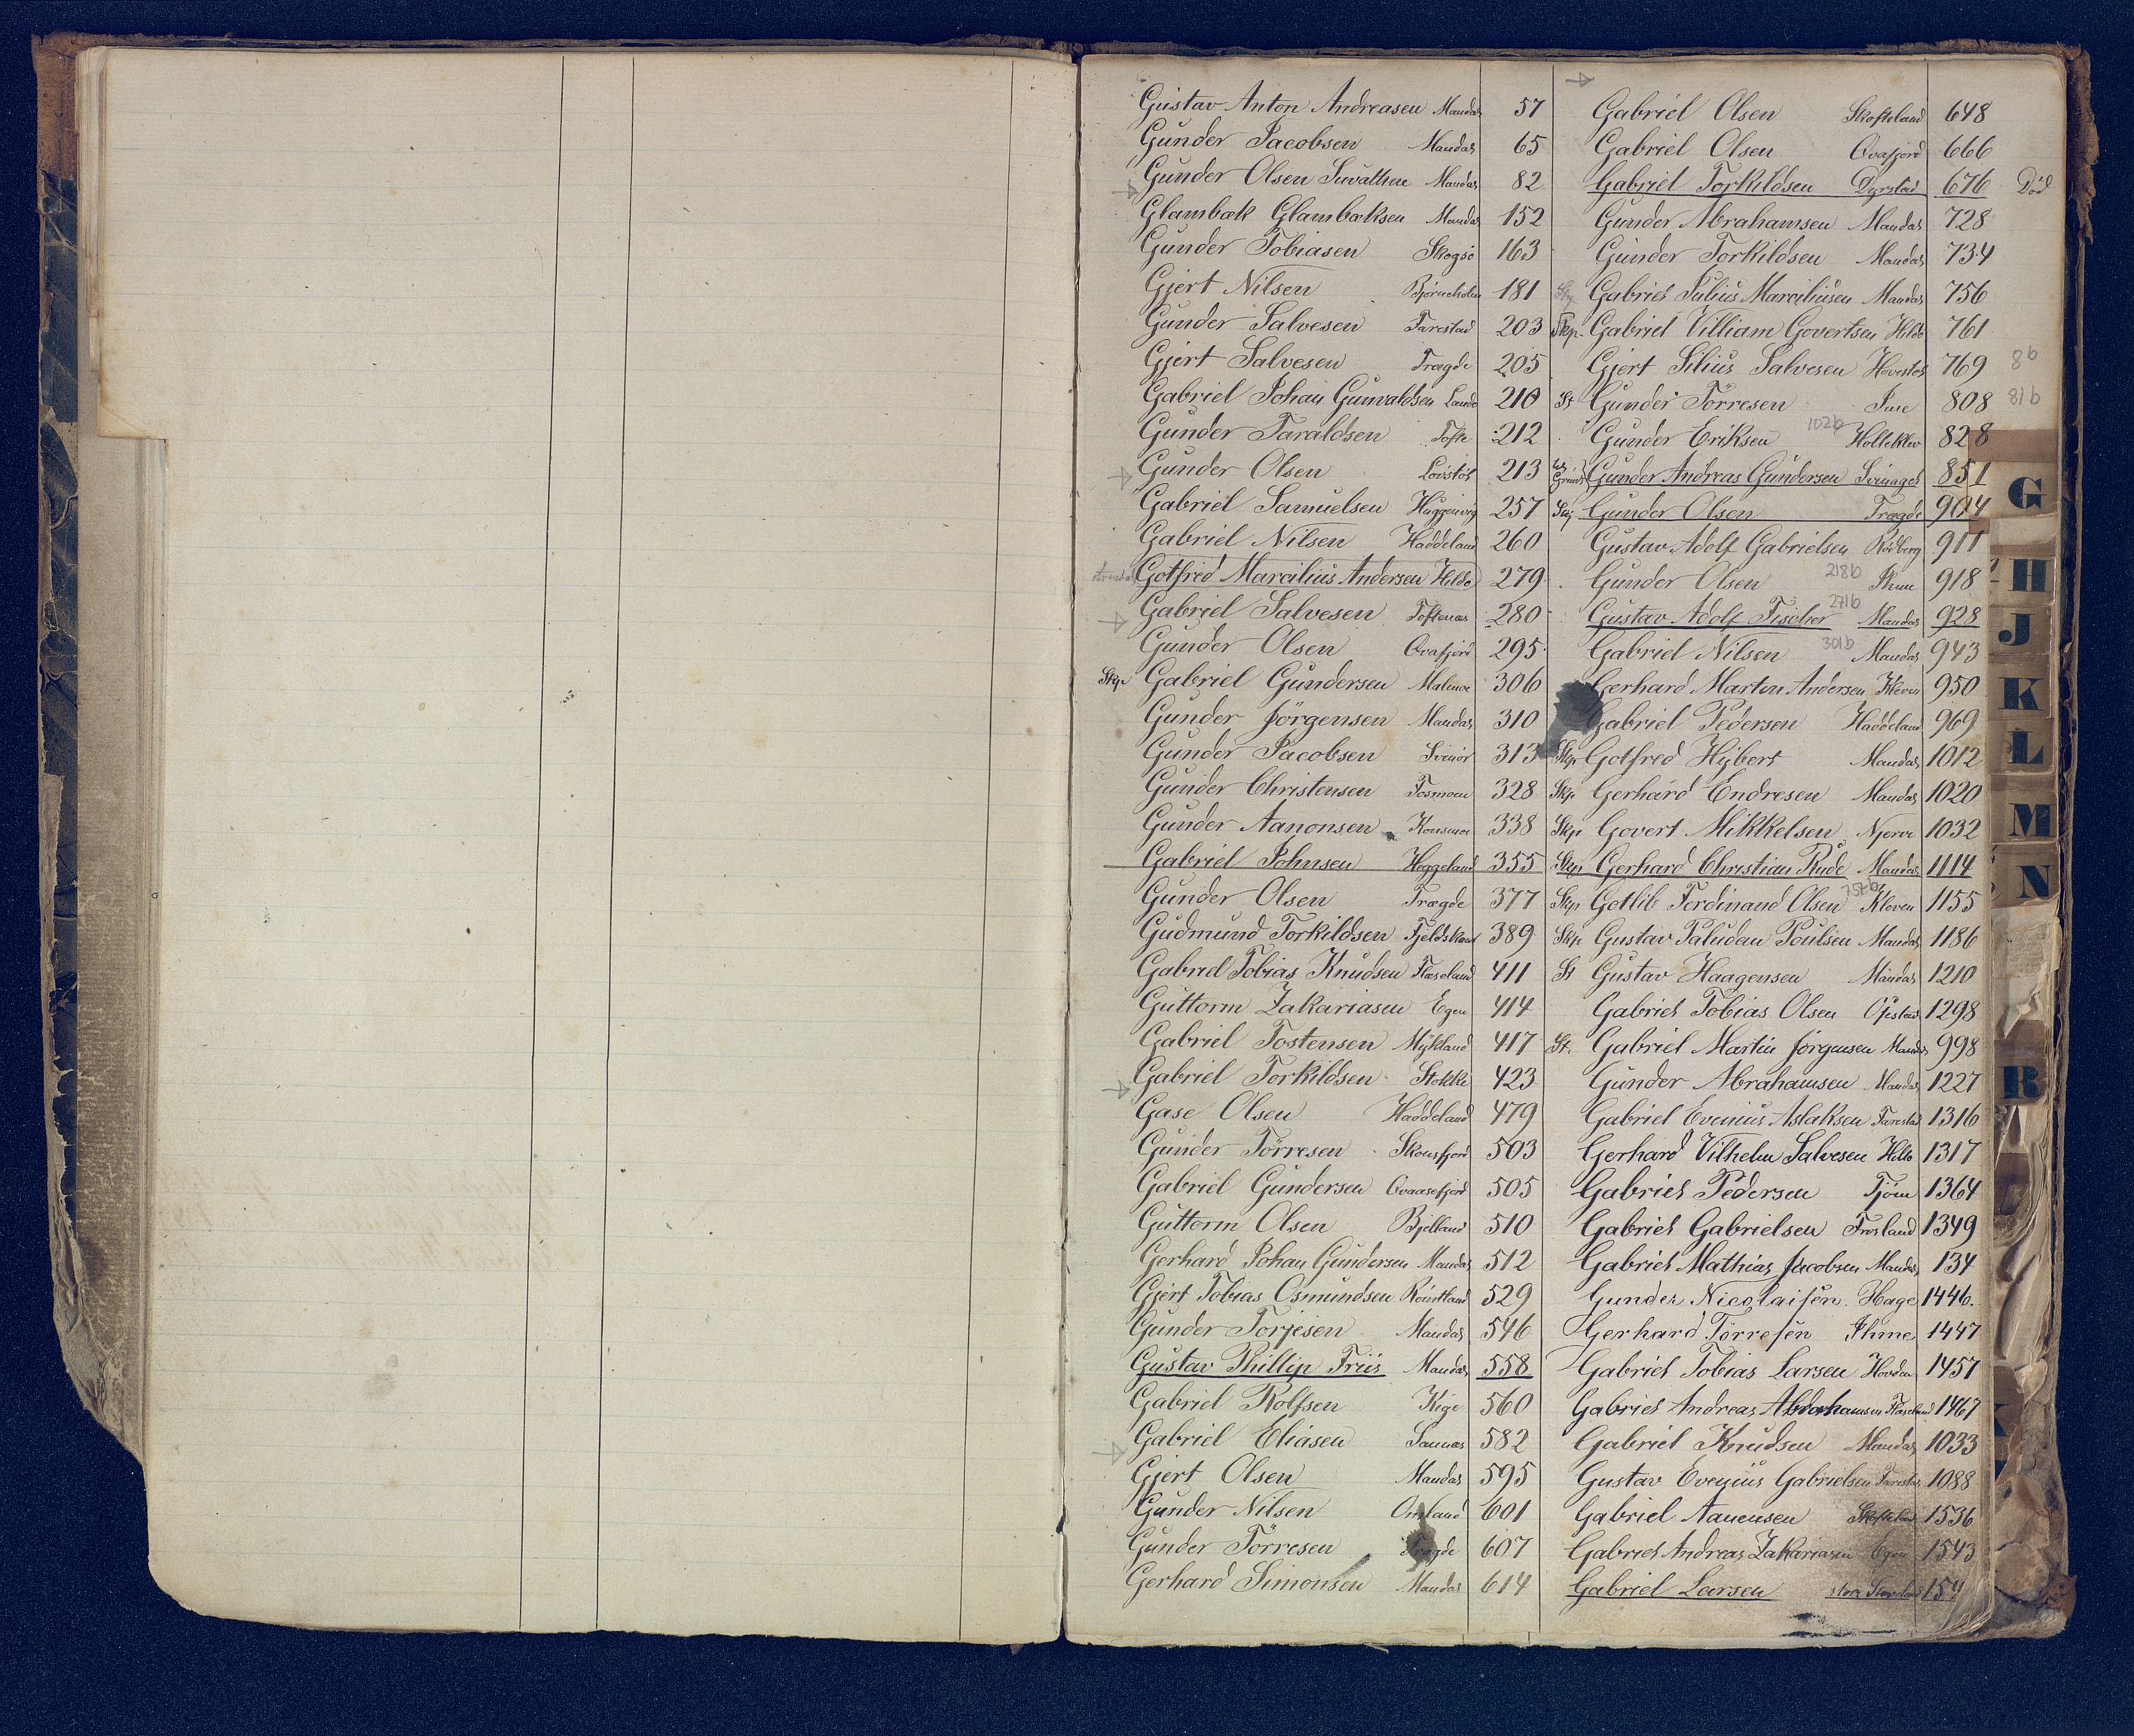 Gustav Anton Andreasen Mandal 57
Gunder Jacobsen Mandal 65
Gunder Olsen Mandal 82
Glambæk Glambæksen Mandal 152
Gunder Tobiasen Skogsø 163
Gjert Nilsen 181
Gunder Salvesen Farestad 203
Gjert Salvesen Tragde 205
Gabriel Johan Gunvaldsen 210
Gunder Taraldsen Tofte 212
Gunder Olsen 213
Gabriel Samuelsen 257
Gabriel Nilsen Haddeland 260
Gotfred Marcilius Andersen Hille 279
Gabriel Salvesen Toftenæs 280
Gunder Olsen Ovafjord 295
Skp. Gabriel Gundersen Malmø 306
Gunder Jörgensen Mandal 310
Gunder Jacobsen Svinör 313
Gunder Christensen 328
Gunder Aanonsen Konsmo 338
Gabriel Johnsen Hoggeland 355
Gunder Olsen Tragde 377
Gudmund Torkildsen 389
Gabriel Tobias Knudsen 411
Guttorm Zakariasen Egen 414
Gabriel Tostensen Mykland 417
Gabriel Torkildsen Stokke 423
Gase Olsen Haddeland 479
Gunder Törresen 503
Gabriel Gundersen 505
Guttorm Olsen Bjelland 510
Gerhard Johan Gundersen Mandal 512
Gjert Tobias Osmundsen 529
Gunder Torjesen Mandal 546
Gustav Phillip Friis Mandal 558
Gabriel Rolfsen Kige 560
Gabriel Eliasen Sannæs 582
Gjert Olsen Mandal 595
Gunder Nilsen Omland 601
Gunder Törresen Tragde 607
Gerhard Simonsen Mandal 614
Gabriel Olsen Skofteland 648
Gabriel Olsen Ovafjord 666
Gabriel Torkildsen Dyrstad 676 Død
Gunder Abrahamsen Mandal 728
Gunder Torkildsen Mandal 734
Gabriel Julius Marciliusen Mandal 756
Skp. Gabriel Villiam Govertsen Hille 761
Gjert Silius Salvesen 769 8b
St Gunder Törresen 808 81b
Gunder Eriksen 102b Holteklev 828
Gunder Andreas Gundersen 851
Gunder Olsen Tragde 904
Gustav Adolf Gabrielsen Rödberg 911
Gunder Olsen 218b Ihme 918
Gustav Adolf Fischer 271b Mandal 928
Gabriel Nilsen 301b Mandal 943
Gerhard Marton Andersen Kleven 950
Gabriel Pedersen Haddeland 969
Skp Gotfred Hybert Mandal 1012
Skp Gerhard Endresen Mandal 1020
Skp Govert Mikkelsen Njerve 1032
Skp Gerhard Christian Rude Mandal 1114
Skp Gotlib Ferdinand Olsen 757b Kleven 1155
Skp Gustav Paludan Poulsen Mandal 1186
St Gustav Haagensen Mandal 1210
Gabriel Tobias Olsen 1298
St. Gabriel Martin Jörgensen Mandal 998
Gunder Abrahamsen Mandal 1227
Gabriel Evenius Aslaksen Farestad 1316
Gerhard Vilhelm Salvesen Hille 1317
Gabriel Pedersen Tjöm 1364
Gabriel Gabrielsen 1349
Gabriel Mathias Jacobsen Mandal 134
Gunder Nicolaisen Hage 1446.
Gerhard Törresen Ihme 1447
Gabriel Tobias Larsen 1457
Gabriel Andreas Abrahamsen 1467
Gabriel Knudsen Mandal 1033
Gustav Evenius Gabrielsen Farestad 1088
Gabriel Aanensen Skofteland 1536
Gabriel Andreas Zakariasen Egen 1543
Gabriel Larsen
G
H
J
K
L
M
N
R